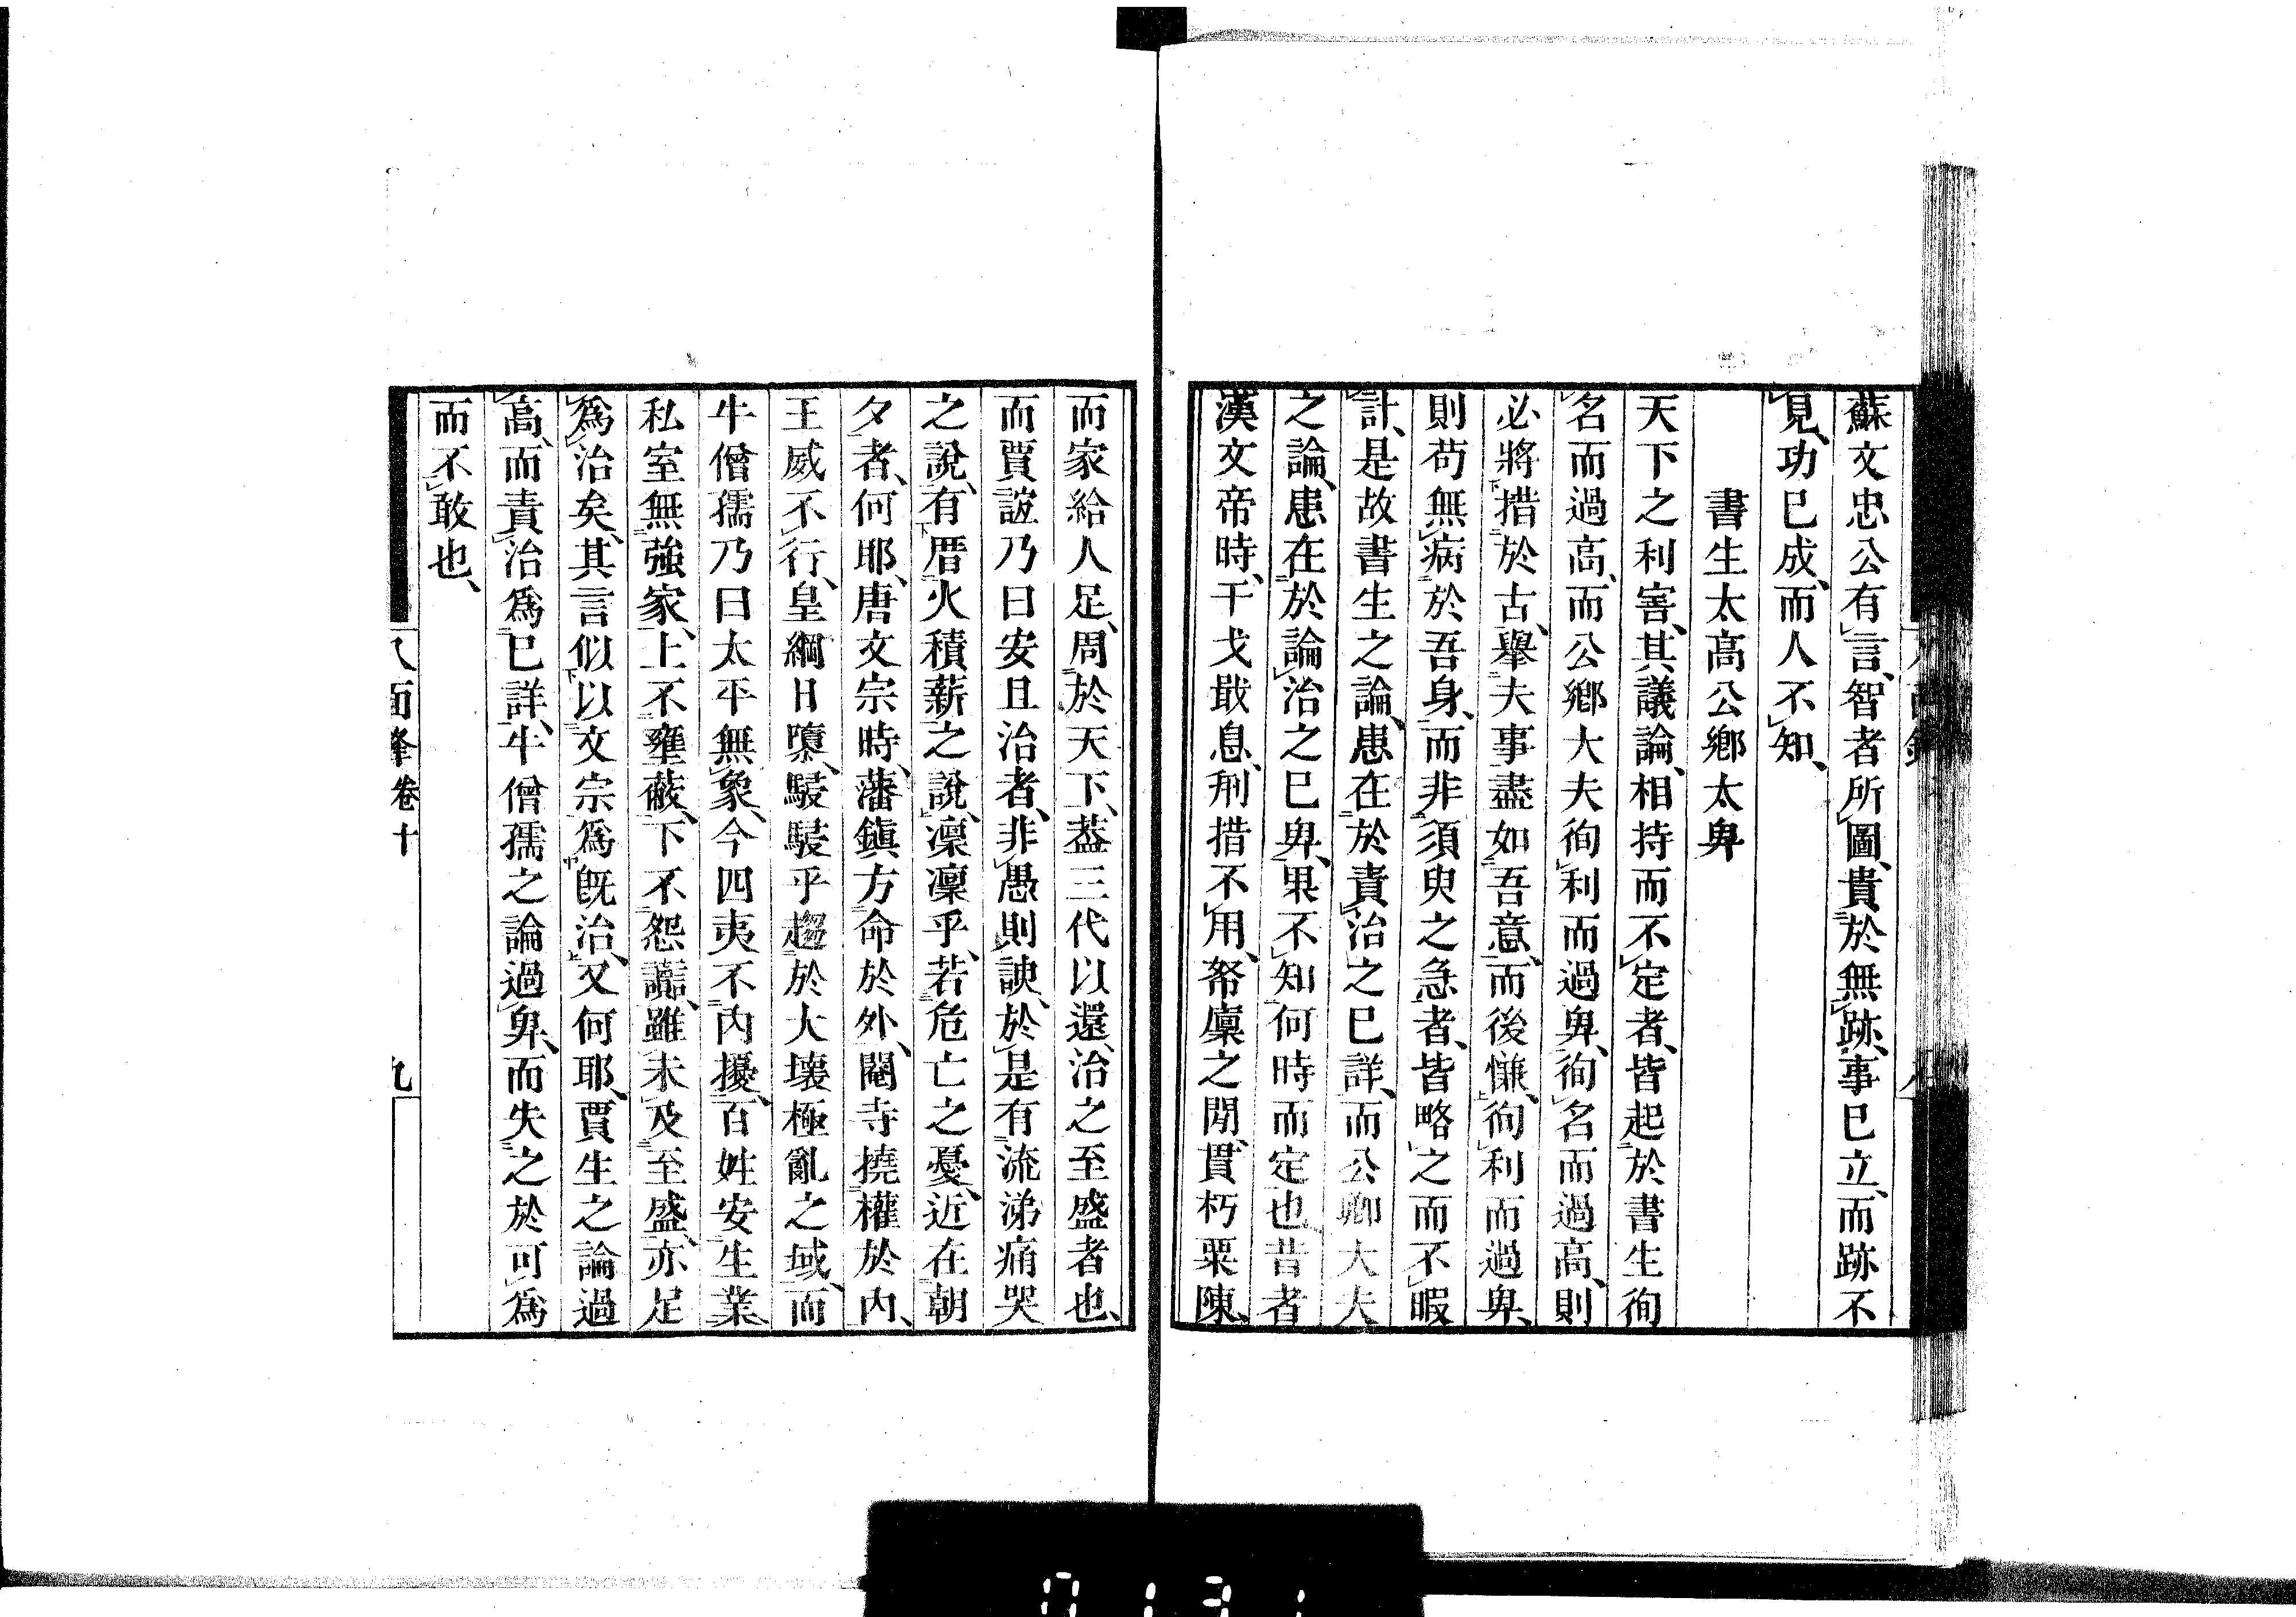 蘇文忠公有言、智者所圖、貴於無跡、事已立、而跡不
見、功已成、而人不知、
書生太高公鄉太卑
天下之利害、其議論、相持而不定者、皆起於書生徇
名而過高、而公鄉大夫徇利而過卑、徇名而過高、則
必將措於古、舉夫事盡如吾意、而後慊、徇利而過卑、
則苟無病於吾身、而非須臾之急者、皆略之而不暇
計、是故書生之論、患在於責治之已詳、而公卿大夫
之論、患在於論治之已卑、果不知何時而定也、昔者
漢文帝時、干戈戢息、刑措不用、帑廩之閒、貫朽粟陳、
而家給人足、周於天下、葢三代以還、治之至盛者也、
而賈誼乃曰安且治者、非愚則諛、於是有流涕痛哭
之說、有厝火積薪之說、凜凜乎、若危亡之憂、近在朝
夕者、何耶、唐文宗時、藩鎮方命於外、閹寺撓權於內、
王威不行、皇綱日隳、駸駸乎趨於大壞極亂之域、而
牛僧孺乃曰太平無象、今四夷不內擾、百姓安生業、
私室無強家、上不壅蔽、下不怨讟、雖未及至盛、亦足
為治矣、其言似以文宗為既治、又何耶、賈生之論過
高、而責治為已詳、牛僧孺之論過卑、而失之於可為
而不敢也、
八面鋒卷十
九
0131